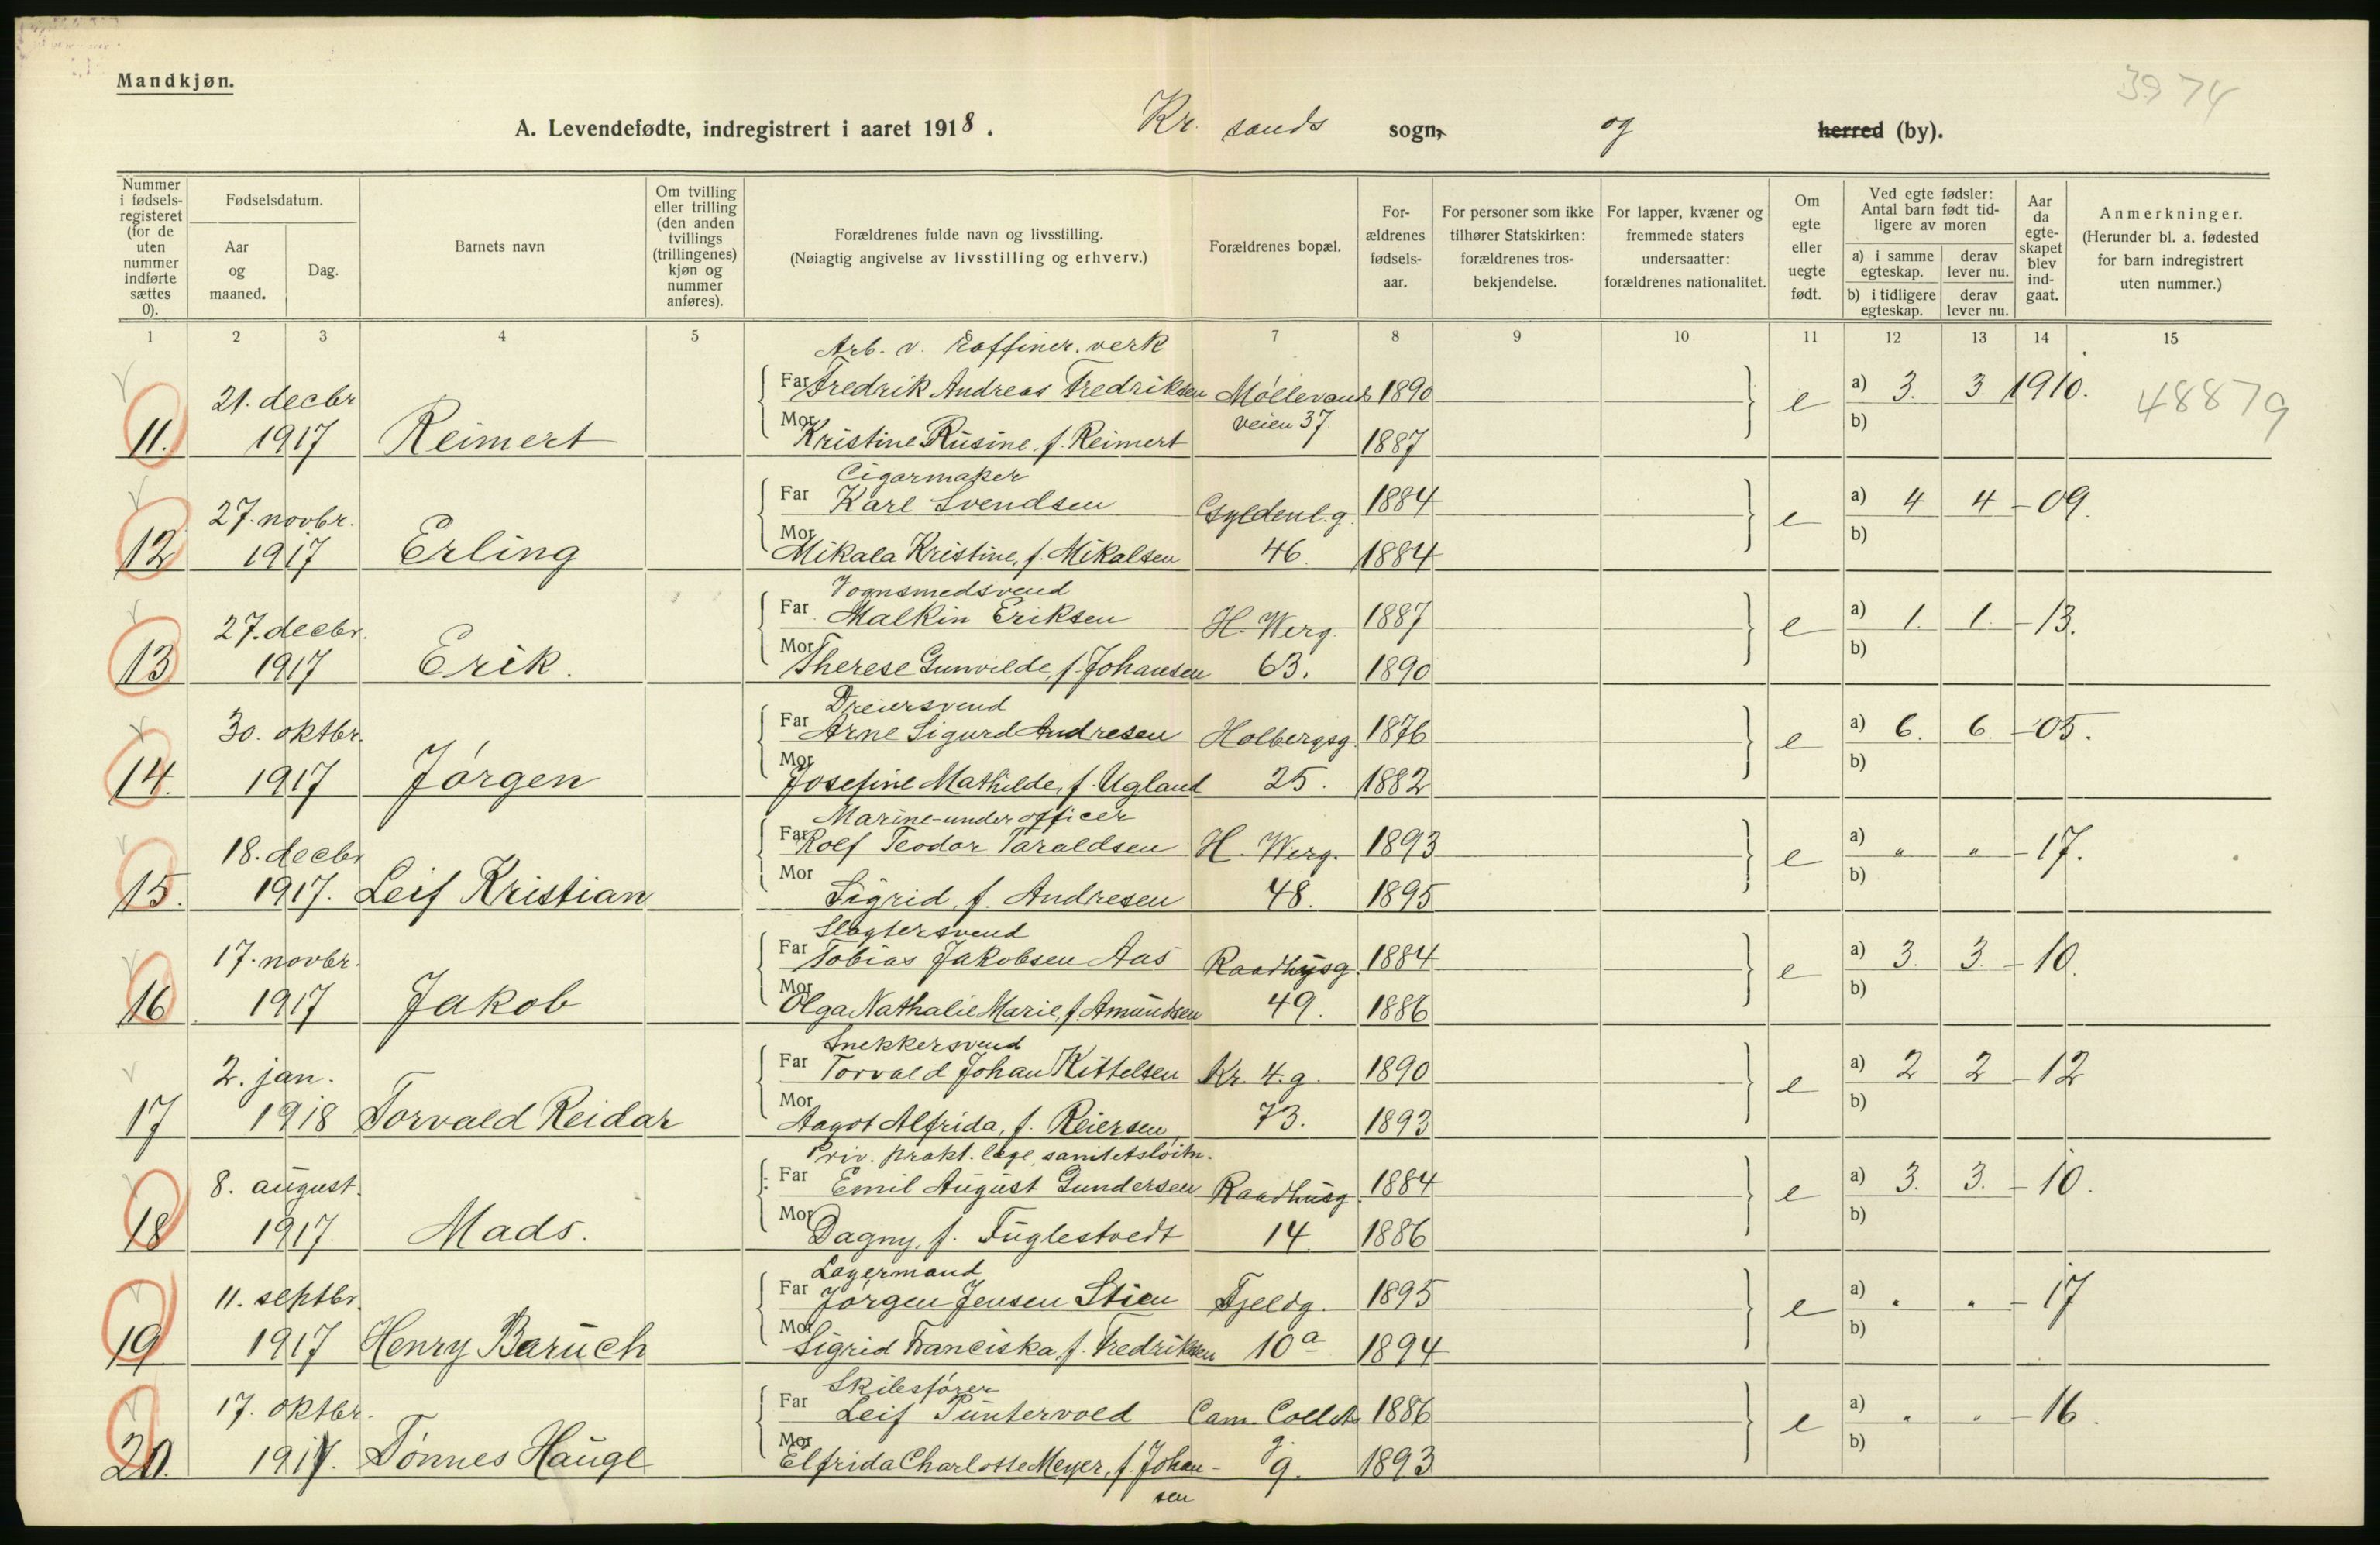 Mandkjøn.
3974
A. Levendefødte, indregistrert i aaret 1918. Kr. sands sogn, og herred (by).
Nummer i fødsels-registeret (for de uten nummer indførte sættes 0).
Fødselsdatum.
Aar og maaned.
Dag.
Barnets navn
Om tvilling eller trilling (den anden tvillings (trillingenes) kjøn og nummer anføres).
Forældrenes fulde navn og livsstilling.
(Nøiagtig angivelse av livsstilling og erhverv.)
Forældrenes bopæl.
For-ældrenes fødsels-aar.
For personer som ikke tilhører Statskirken: forældrenes tros-bekjendelse.
For lapper, kvæner og fremmede staters undersaatter: forældrenes nationalitet.
Om egte eller uegte født.
Ved egte fødsler: Antal barn født tid-ligere av moren
a) i samme egteskap.
derav lever nu.
b) i tidligere egteskap.
derav lever nu.
Aar da egte-skapet blev ind-gaat.
Anmerkninger.
(Herunder bl. a. fødested for barn indregistrert uten nummer.)
1 2 3 4 5 6 7 8 9 10 11 12 13 14 15
Arb. v. Raffiner. verk
21. decbr Far Fredrik Andreas Fredriksen Møllevands 1890 e a) 3. 3 1910. 48879
11. 1917 Reimert Mor Kristine Rusine, f. Reimert veien 37 1887 b)
Cigarmaker
27. novbr. Far Karl Svendsen Gyldenl.g. 1884 e a) 4 4 - 09.
12 1917 Erling Mor Mikala Kristine, f. Mikalsen 46. 1884 b)
Vognsmedsvend
27. decbr. Far Malkin Eriksen H. Werg. 1887 e a) 1. 1. - 13.
13 1917 Erik. Mor Therese Gunvilde, f. Johansen 63. 1890 b)
Dreiersvend
30. oktbr. Far Arne Sigurd Andresen Holbergsg. 1876 e a) 6. 6. - 05.
14. 1917 Jørgen Mor Josefine Mathilde, f. Ugland 25. 1882 b)
Marine-underofficer
18. decbr Far Rolf Teodor Taraldsen H. Werg. 1893 e a) " " - 17.
15. 1917. Leif Kristian Mor Sigrid, f. Andresen 48. 1895 b)
Slagtersvend
17. novbr. Far Tobias Jakobsen Aas Raadhusg. 1884 e a) 3. 3. - 10.
16 1917 Jakob Mor Olga Nathalie Marie, f. Amundsen 49. 1886 b)
Snekkersvend
2. jan. Far Torvald Johan Kittelsen Kr. 4. g. 1890 e a) 2 2 - 12
17 1918 Torvald Reidar Mor Aagot Alfrida, f. Reiersen 73. 1893 b)
Priv. prakt. læge, sanitetsløitn.
8. august. Far Emil August Gundersen Raadhusg. 1884 e a) 3. 3. - 10.
18 1917. Mads. Mor Dagny, f. Fuglestvedt 14 1886 b)
Lagermand
11. septbr. Far Jørgen Jensen Stien Fjeldg. 1895 e a) " " - 17
19 1917 Henry Baruch Mor Sigrid Franciska, f. Fredriksen 10a 1894 b)
Skibsfører
17. oktbr. Far Leif Puntervold Cam. Colletts 1886 e a) " " - 16.
20. 1917. Tønnes Hauge Mor Elfrida Charlotte Meyer, f. Johan- g. 9. 1893 b)
sen